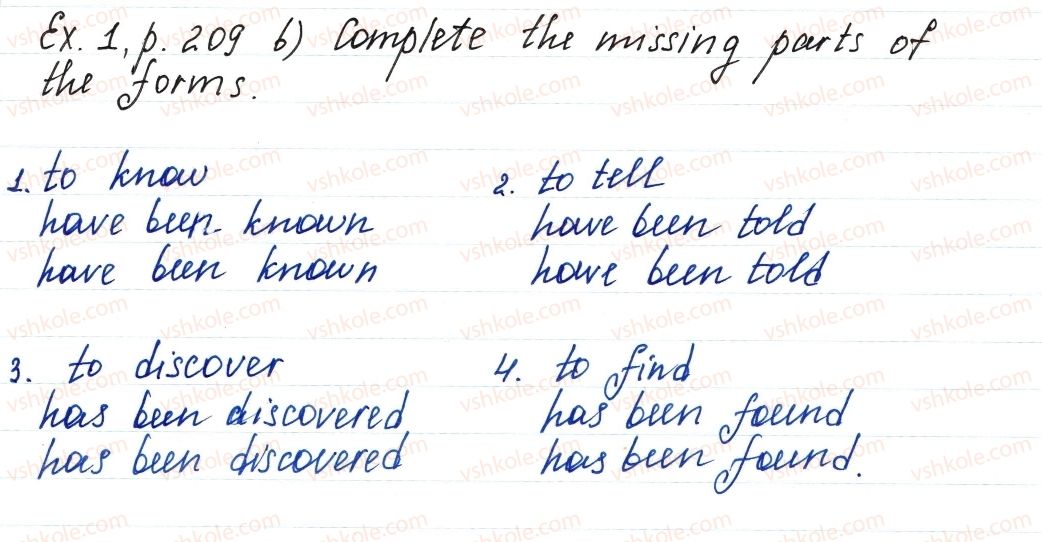 Ex. 1, p. 209 b) Complete the missing parts of
the forms.
1. to know
have been known
have been known
2. to tell
have been told
have been told
3. to discover
has been discovered
has been discovered
4. to find
has been found
has been found.
vshkole.com